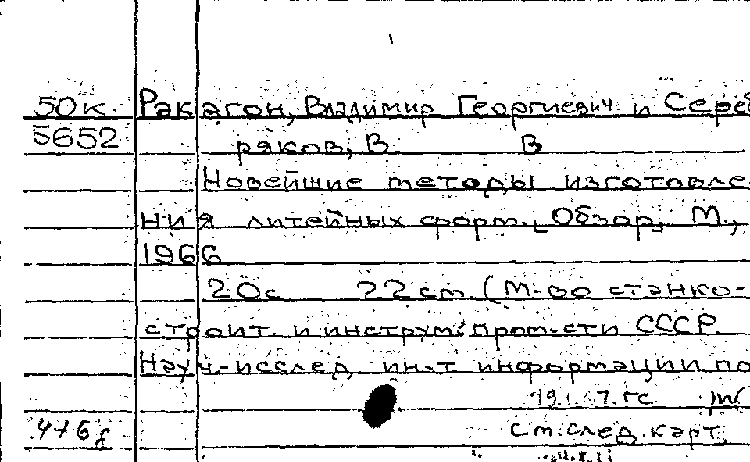 50к. Ракагон, Владимир Георгиевич и Сереб
5652 ряков, В. В
Новейшие методы изготовле
ния литейных форм. [Обзор]. М.,
1966
20с 22 см. (М-во станко-
строит. и инструм. пром-сти СССР.
Науч-исслед. ин-т информации по
См. след. карт.